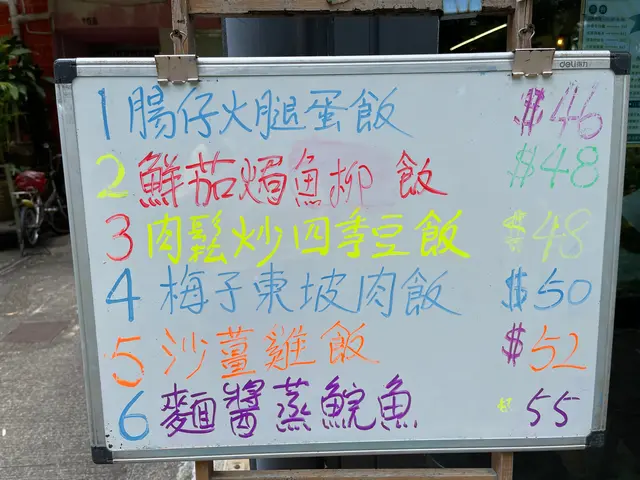 deli
1 腸仔火腿蛋飯 $46
2 鮮茄焗魚柳 飯 $48
3 肉鬆炒四季豆飯 $48
4 梅子東坡肉飯 $50
5 沙薑雞飯 $52
6 麵醬蒸鯇魚 55